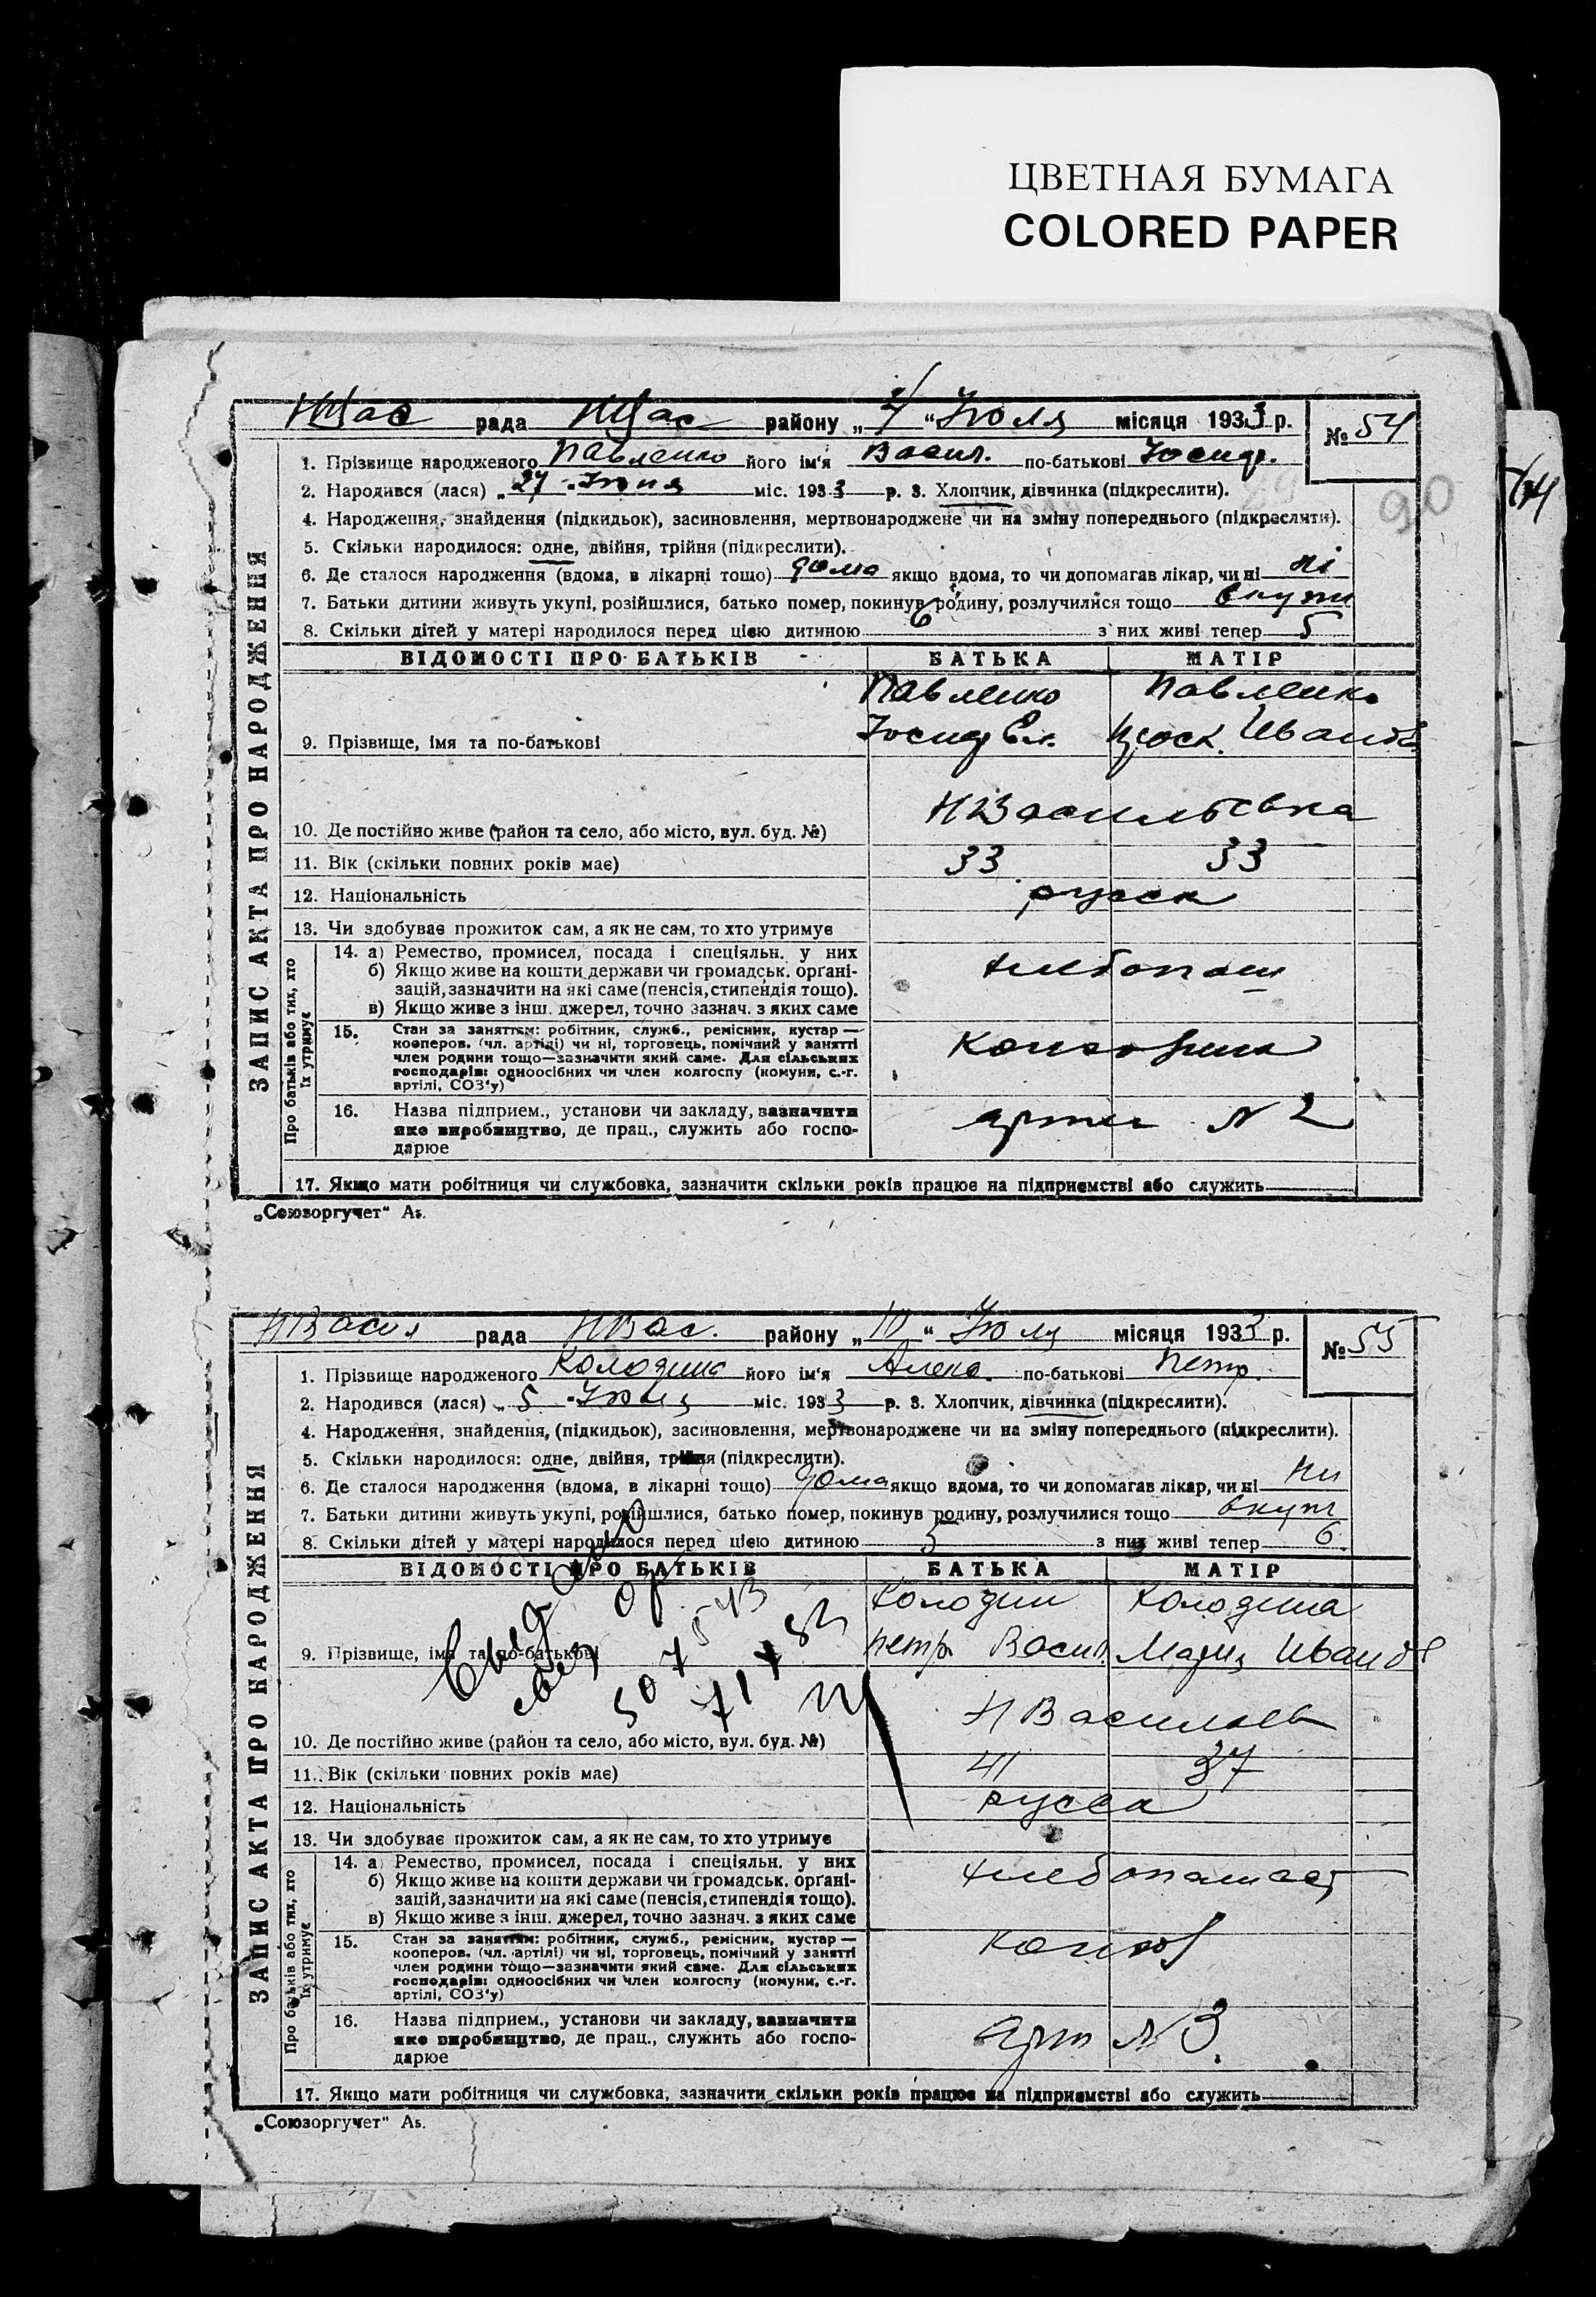 ЦВЕТНАЯ БУМАГА
COLORED PAPER
рада НВас района „ 7 “ Июля місяця 1933 р. № 54
1. Прізвище народженого Павленко його ім'я Васил. по-батькові Иосиф.
2. Народився (лася) „ 27 “ Июня міс. 1933 р. 3. Хлопчик, дівчинка (підкреслити).
90
4. Народження, знайдення (підкидьок), засиновлення, мертвонароджене чи на зміну попереднього (підкреслити).
5. Скільки народилося: одне, двійня, трійня (підкреслити).
6. Де сталося народження (вдома, в лікарні тощо) дома якщо вдома, то чи допомагав лікар, чи ні ні
7. Батьки дитини живуть укупі, розійшлися, батько помер, покинув родину, розлучилися тощо вкупи
8. Скільки дітей у матері народилося перед цією дитиною 6 з них живі тепер 5
ЗАПИС АКТА ПРО НАРОДЖЕННЯ
ВІДОМОСТІ ПРО БАТЬКІВ БАТЬКА МАТІР
Павленко Павленко
9. Прізвище, імя та по-батькові Иосиф Ел. Проск. Иванов
10. Де постійно живе (район та село, або місто, вул. буд. №) НВасильевка
11. Вік (скільки повних років має) 33 33
12. Національність русск
13. Чи здобуває прожиток сам, а як не сам, то хто утримує
Про батьків або тих, хто їх утримує
14. а) Ремество, промисел, посада і спеціяльн. у них
б) Якщо живе на кошти держави чи громадськ. орґані-
зацій, зазначити на які саме (пенсія, стипендія тощо).
в) Якщо живе з інш. джерел, точно зазнач. з яких саме
хлебопаш
15. Стан за заняттям: робітник, служб., ремісник, кустар—
кооперов. (чл. артілі) чи ні, торговець, помічний у занятті
член родини тощо—зазначити який саме. Для сільських
господарів: одноосібних чи член колгоспу (комуни, с.-г.
артілі, СОЗ'у)
16. Назва підприєм., установи чи закладу, зазначити
яке виробництво, де прац., служить або госпо-
дарює
артел N 2
17. Якщо мати робітниця чи службовка, зазначити скільки років працює на підприємстві або служить
„Союзоргучет“ А5.
НВасил рада НВас. району „ 10 “ Июля місяця 1933 р. № 55
1. Прізвище народженого Колодина його ім'я Алекс. по-батькові Петр.
2. Народився (лася) „ 5 “ Июля міс. 1933 р. 3. Хлопчик, дівчинка (підкреслити).
4. Народження, знайдення, (підкидьок), засиновлення, мертвонароджене чи на зміну попереднього (підкреслити).
5. Скільки народилося: одне, двійня, трійня (підкреслити).
6. Де сталося народження (вдома, в лікарні тощо) дома якщо вдома, то чи допомагав лікар, чи ні ни
7. Батьки дитини живуть укупі, розійшлися, батько помер, покинув родину, розлучилися тощо вкупі
8. Скільки дітей у матері народилося перед цією дитиною 5 з них живі тепер 6
ЗАПИС АКТА ПРО НАРОДЖЕННЯ
ВІДОМОСТІ ПРО БАТЬКІВ БАТЬКА МАТІР
Колодин Колодина
9. Прізвище, імя та по-батькові Петр Васил. Мария Иванов
10. Де постійно живе (район та село, або місто, вул. буд. №) НВасильев
11. Вік (скільки повних років має) 41 37
12. Національність русса
13. Чи здобуває прожиток сам, а як не сам, то хто утримує
Про батьків або тих, хто їх утримує
14. а) Ремество, промисел, посада і спеціяльн. у них
б) Якщо живе на кошти держави чи громадськ. орґані-
зацій, зазначити на які саме (пенсія, стипендія тощо).
в) Якщо живе з інш. джерел, точно зазнач. з яких саме
15. Стан за заняттям: робітник, служб., ремісник, кустар—
кооперов. (чл. артілі) чи ні, торговець, помічний у занятті
член родини тощо—зазначити який саме. Для сільських
господарів: одноосібних чи член колгоспу (комуни, с.-г.
артілі, СОЗ'у)
16. Назва підприєм., установи чи закладу, зазначити
яке виробництво, де прац., служить або госпо-
дарює
арт N 3
17. Якщо мати робітниця чи службовка, зазначити скільки років працює на підприємстві або служить
„Союзоргучет“ А5.